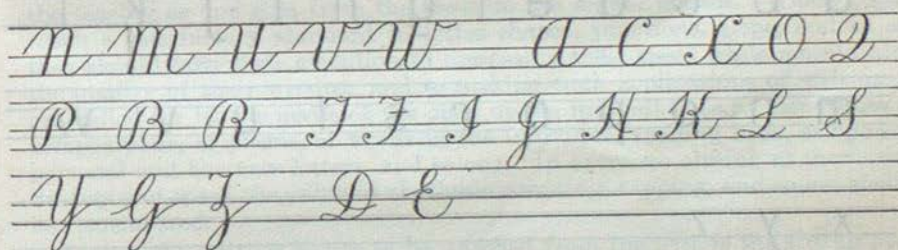 N M U V W A C X O Q
P B R T F I J H K L S
Y G Z D E